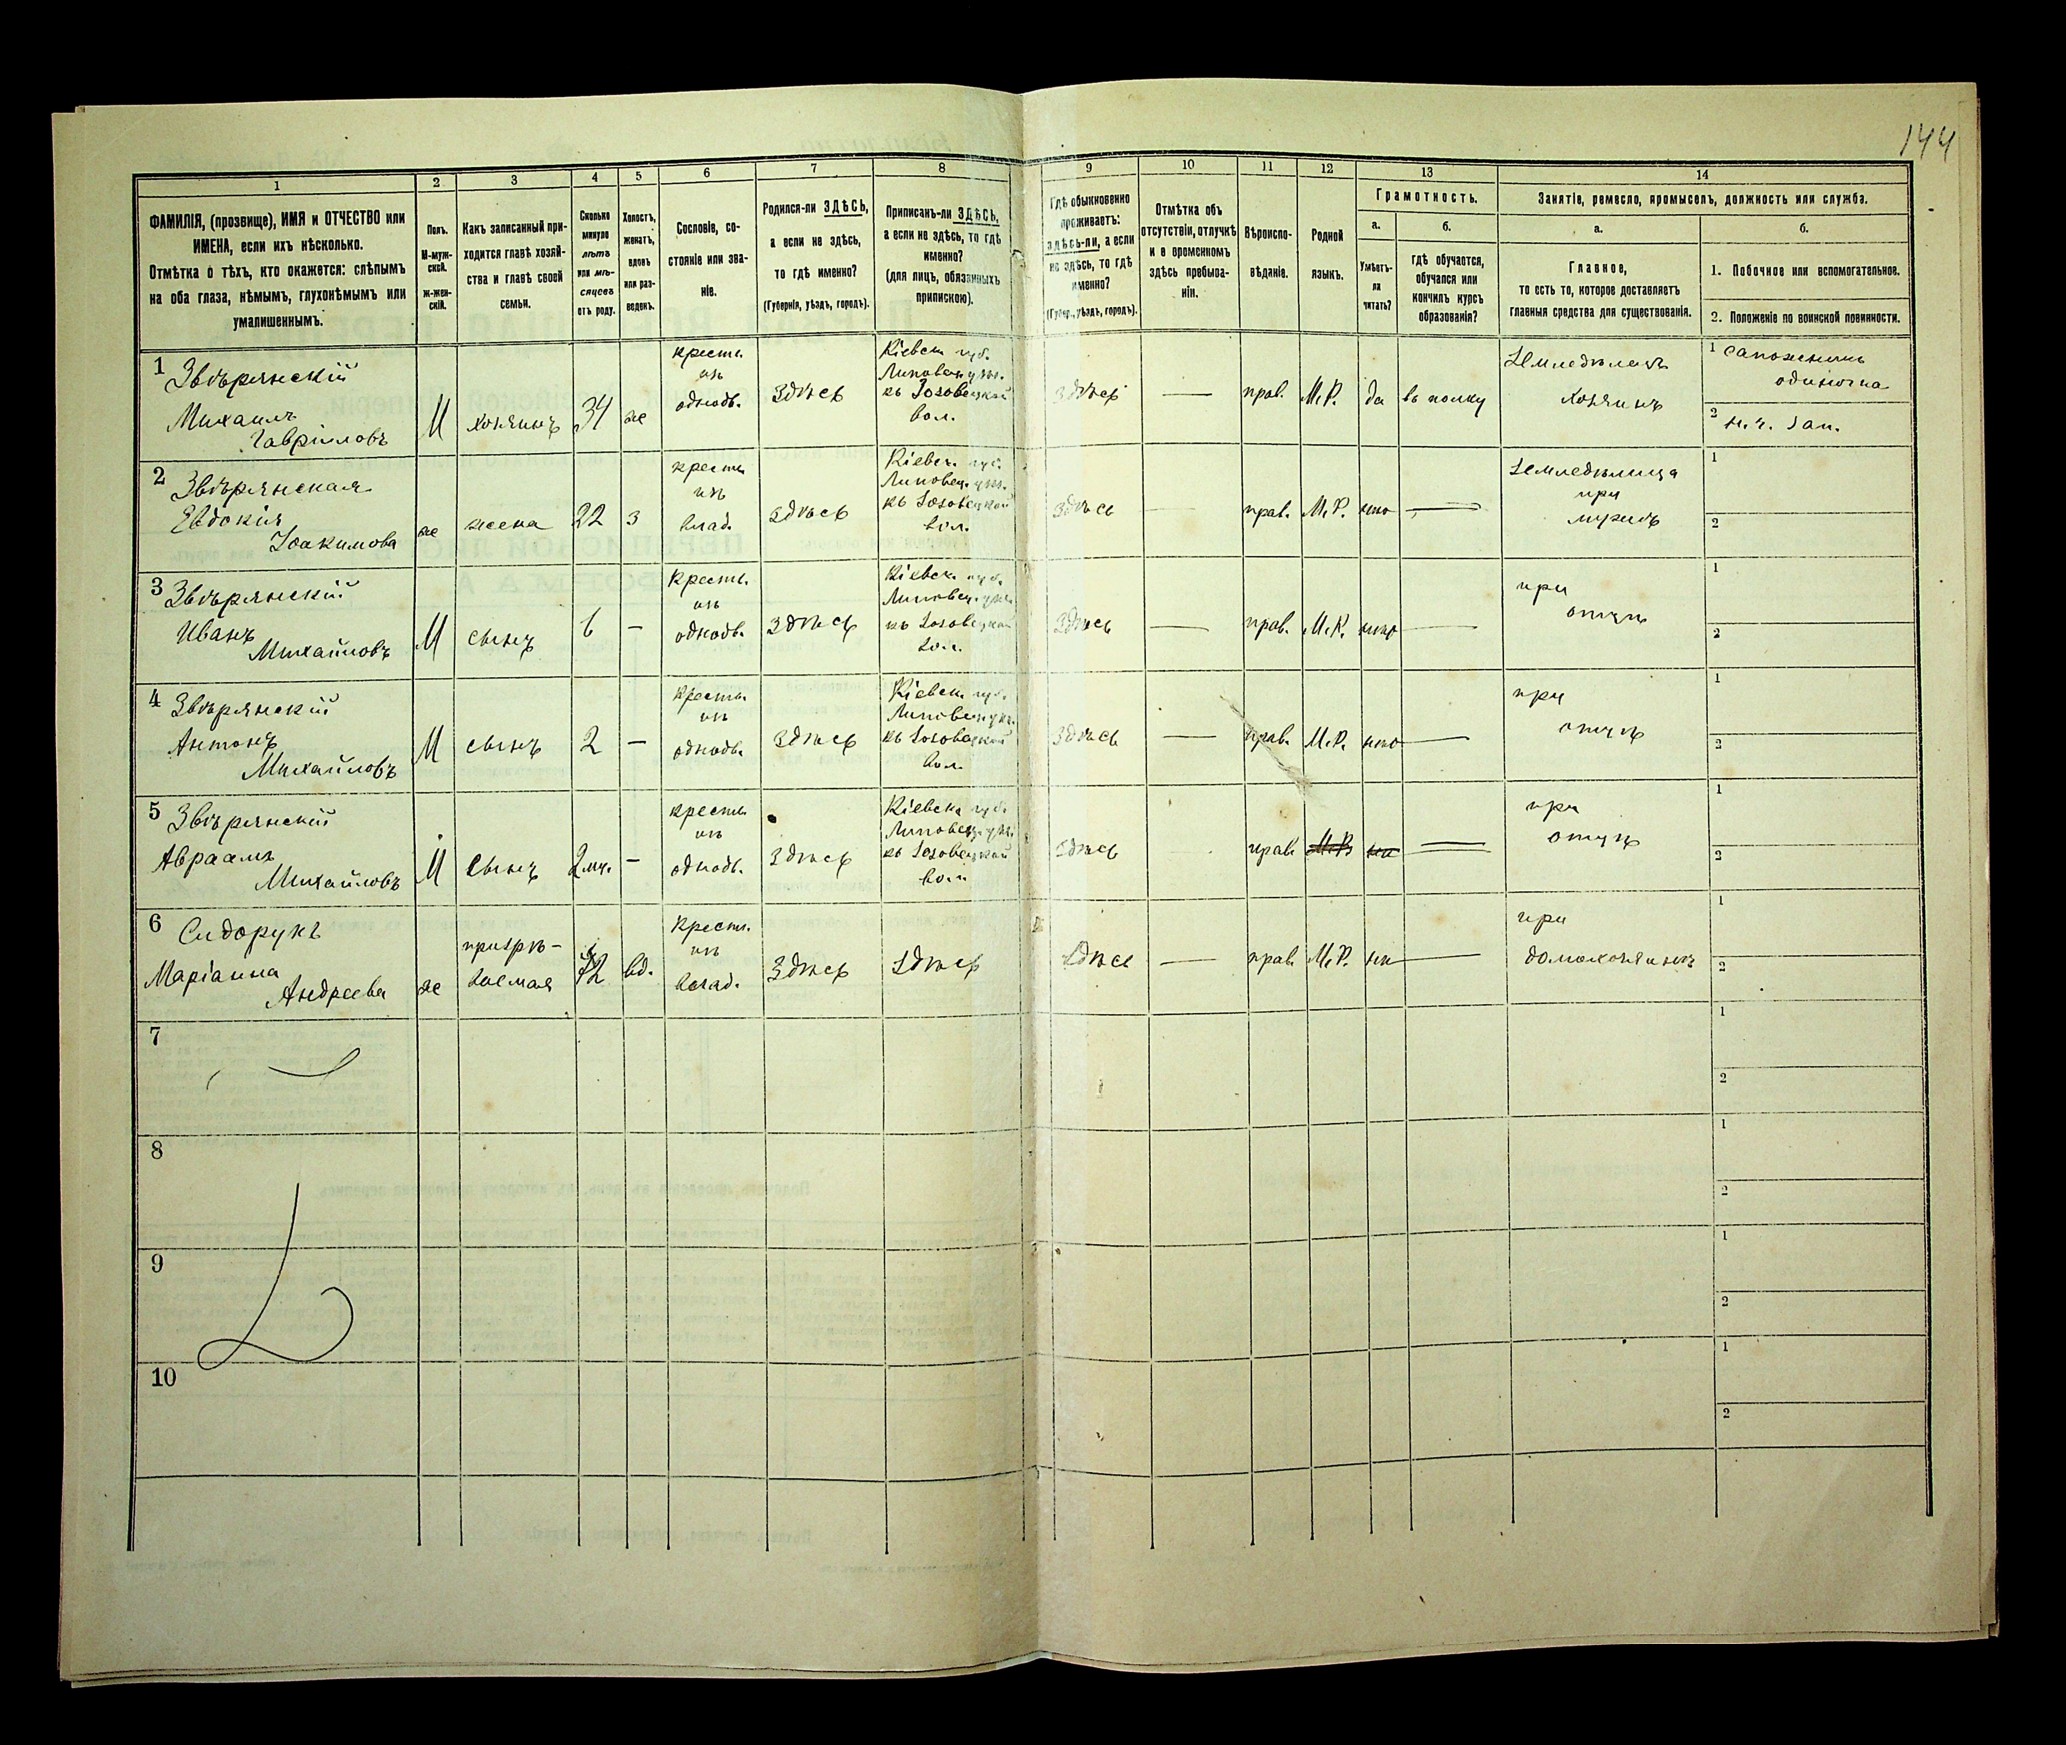 144
1 2 3 4 5 6 7 8 9 10 11 12 13 14
ФАМИЛІЯ, (прозвище), ИМЯ и ОТЧЕСТВО или
ИМЕНА, если ихъ нѣсколько.
Отмѣтка о тѣхъ, кто окажется: слѣпымъ
на оба глаза, нѣмымъ, глухонѣмымъ или
умалишеннымъ.
Полъ.
М-муж-
ской.
ж-жен-
скій.
Какъ записанный при-
ходится главѣ хозяй-
ства и главѣ своей
семьи.
Сколько
минуло
лѣтъ
или мѣ-
сяцевъ
отъ роду.
Холостъ,
женатъ,
вдовъ
или раз-
веденъ.
Сословіе, со-
стояніе или зва-
ніе.
Родился-ли ЗДѢСЬ,
а если не здѣсь,
то гдѣ именно?
(Губернія, уѣздъ, городъ).
Приписанъ-ли ЗДѢСЬ,
а если не здѣсь, то гдѣ
именно?
(для лицъ, обязанныхъ
припискою).
Гдѣ обыкновенно
проживаетъ:
здѣсь-ли, а если
не здѣсь, то гдѣ
именно?
(Губер., уѣздъ, городъ).
Отмѣтка объ
отсутствіи, отлучкѣ
и о временномъ
здѣсь пребыва-
ніи.
Вѣроиспо-
вѣданіе.
Родной
языкъ.
Грамотность.
а.
Умѣетъ-
ли
читать?
б.
гдѣ обучается,
обучался или
кончилъ курсъ
образованія?
Занятіе, ремесло, промыселъ, должность или служба.
а.
Главное,
то есть то, которое доставляетъ
главныя средства для существованія.
б.
1. Побочное или вспомогательное.
2. Положеніе по воинской повинности.
1
Звѣрянскій
Михаилъ
Гавріиловъ
М
хозяинъ
34
же
крестьн.
изъ
однодв.
Здѣсь
Кіевск. губ.
Липовец. уѣз.
вол.
здѣсь
—
прав.
М.Р.
да
въ полку
Земледѣлецъ
хозяинъ
1 сапожникъ
одиночка
2 н.ч. зап.
2
Звѣрянская
Евдокія
Іоакимова
же
жена
22
з
крестьн.
изъ
влад.
здѣсь
Кіевск. губ.
Липовец. уѣз.
вол.
здѣсь
—
прав.
М.Р.
нѣтъ
—
Земледѣлица
при
мужѣ
1
2
3
Звѣрянскій
Иванъ
Михайловъ
М
сынъ
6
—
крестьн.
изъ
однодв.
здѣсь
Кіевск. губ.
Липовец. уѣз.
вол.
здѣсь
—
прав.
М.Р.
нѣтъ
—
при
отцѣ
1
2
4
Звѣрянскій
Антонъ
Михайловъ
М
сынъ
2
—
крестьн.
изъ
однодв.
здѣсь
Кіевск. губ.
Липовец. уѣз.
вол.
здѣсь
—
прав.
М.Р.
нѣтъ
—
при
отцѣ
1
2
5
Звѣрянскій
Авраамъ
Михайловъ
М
сынъ
2 мѣ.
—
крестьн.
изъ
однодв.
здѣсь
Кіевск. губ.
Липовец. уѣз.
вол.
здѣсь
прав.
М.Р.
—
при
отцѣ
1
2
6
Сидорукъ
Маріанна
Андреева
же
призрѣ-
ваемая
72
вд.
Крестьн.
изъ
влад.
Здѣсь
здѣсь
здѣсь
—
прав.
М.Р.
нѣ
—
при
домохозяинѣ
1
2
7
1
2
8
1
2
9
1
2
10
1
2